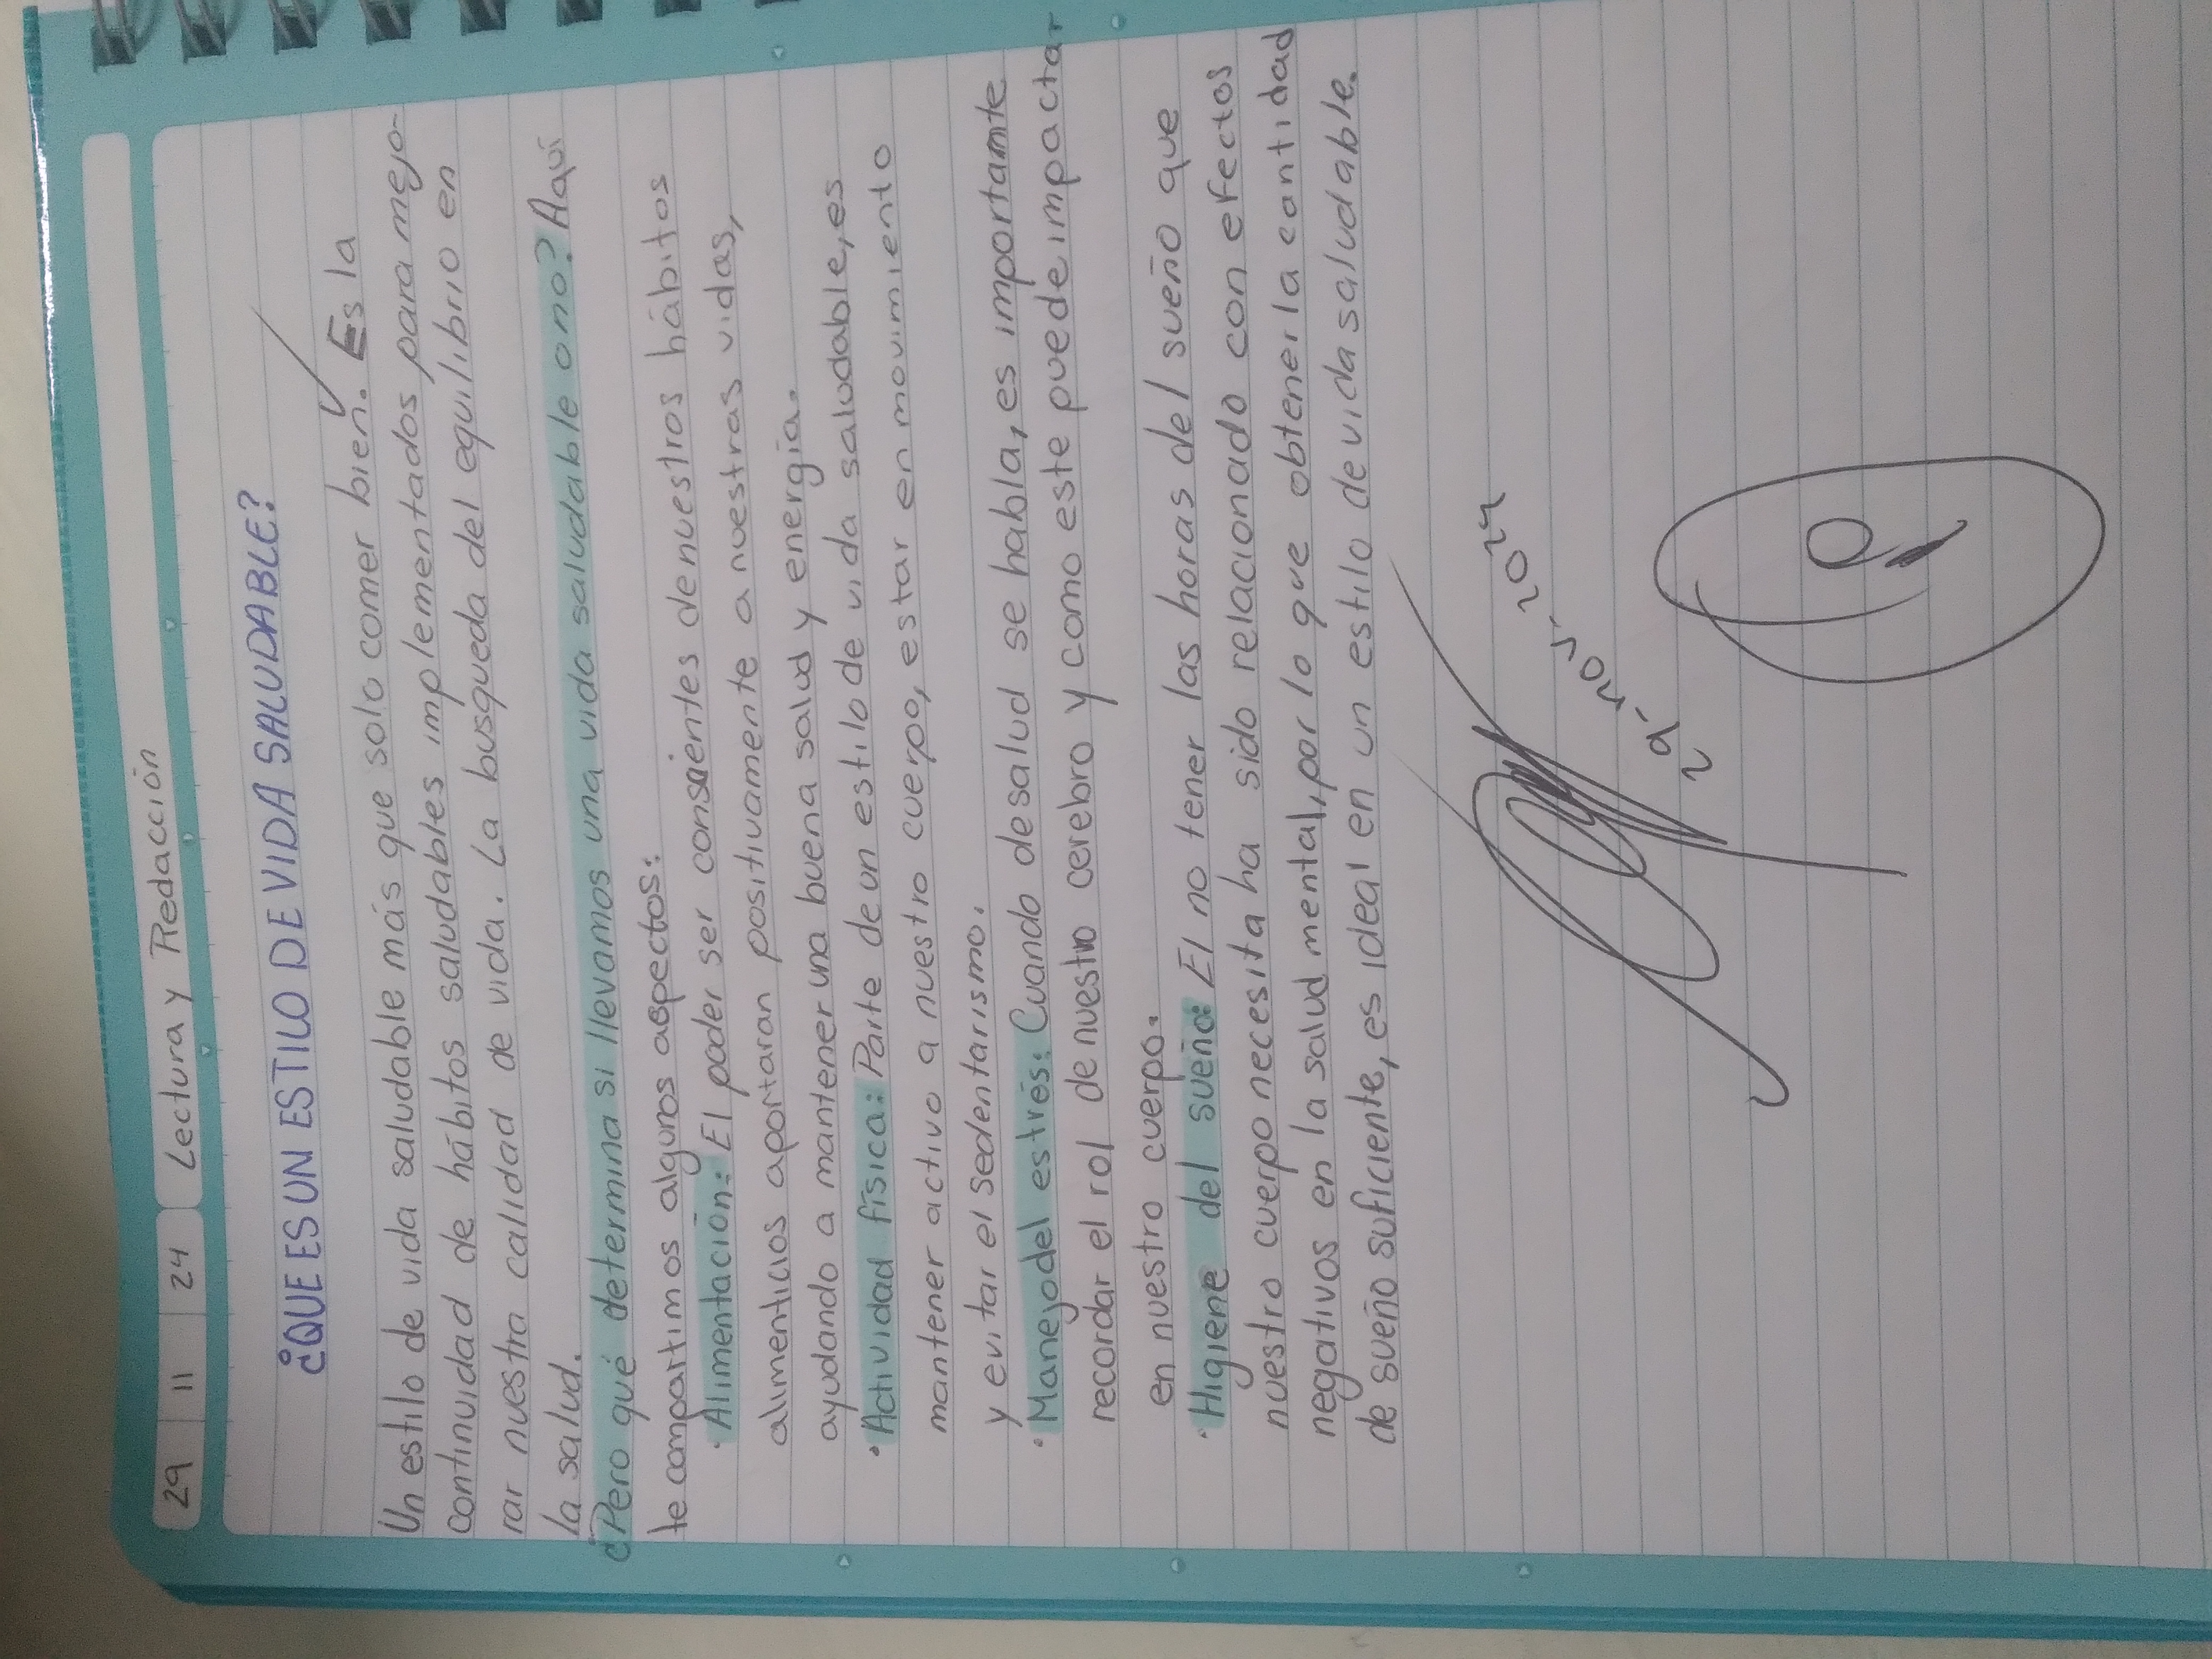 29 11 24 Lectura y Redacción
¿QUE ES UN ESTILO DE VIDA SALUDABLE?
Un estilo de vida saludable más que solo comer bien. Es la
continuidad de hábitos saludables implementados para mejo-
rar nuestra calidad de vida. La busqueda del equilibrio en
la salud.
¿Pero qué determina si llevamos una vida saludable o no? Aquí
te compartimos algunos aspectos:
· Alimentación: El poder ser conscientes de nuestros hábitos
alimenticios aportaran positivamente a nuestras vidas,
ayudando a mantener una buena salud y energía.
· Actividad física: Parte de un estilo de vida saludable, es
mantener activo a nuestro cuerpo, estar en movimiento
y evitar el sedentarismo.
· Manejo del estrés: Cuando de salud se habla, es importante
recordar el rol de nuestro cerebro y como este puede impactar
en nuestro cuerpo.
· Higiene del sueño: El no tener las horas del sueño que
nuestro cuerpo necesita ha sido relacionado con efectos
negativos en la salud mental, por lo que obtener la cantidad
de sueño suficiente, es ideal en un estilo de vida saludable.